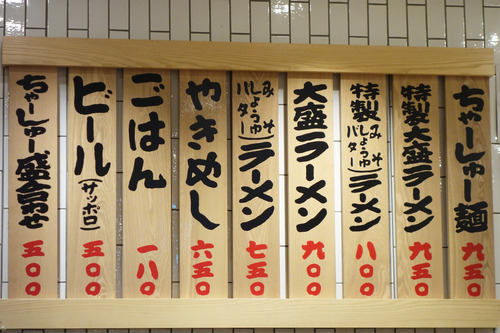 ちゃーしゅー麺 九五〇
特製大盛ラーメン 九五〇
特製(みそ しょうゆ バター)ラーメン 八〇〇
大盛ラーメン 九〇〇
(みそ しょうゆ バター)ラーメン 七五〇
やきめし 六五〇
ごはん 一八〇
ビール(サッポロ) 五〇〇
ちゃーしゅー盛合せ 五〇〇